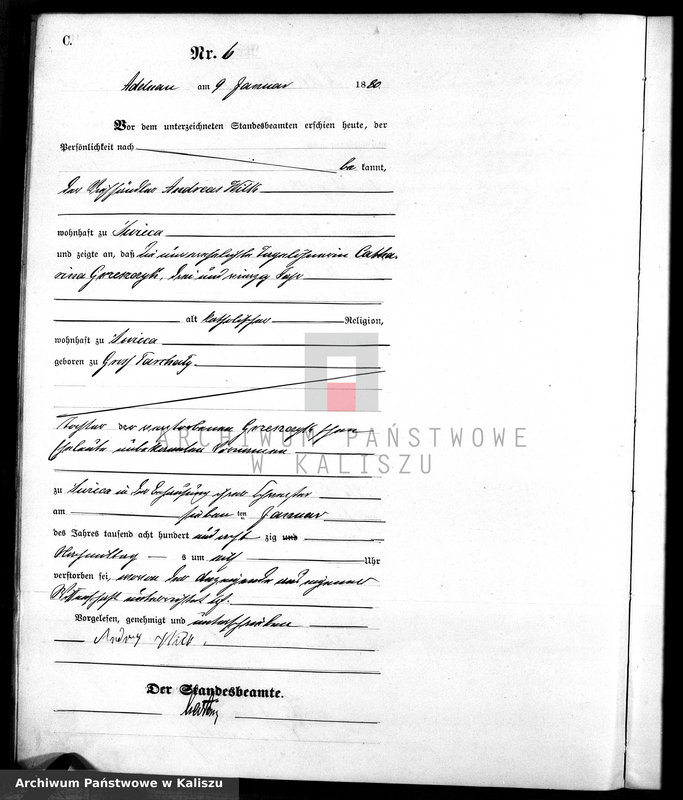 C.
Nr. 6
Adelnau am 9 Januar 1880.
Vor dem unterzeichneten Standesbeamten erschien heute, der
Persönlichkeit nach
be kannt,
der Andreas Wilk
wohnhaft zu
und zeigte an, daß die unverehelichte Tagelöhnerin Catha-
rina Grzeszczyk, drei und vierzig Jahr
alt katholischer Religion,
wohnhaft zu
geboren zu Groß Tarchaly
Tochter der verstorbenen Grzeszczykschen
Eheleute unbekannten Vornamen
zu in der Behausung ihrer Schwester
am sieben ten Januar
des Jahres tausend acht hundert und acht zig und
Nachmittag s um elf Uhr
verstorben sei, wovon der Anzeigende aus eigener
Wissenschaft unterrichtet ist.
Vorgelesen, genehmigt und unterschrieben
Wilk
Der Standesbeamte.
ARCHIWUM PAŃSTWOWE
W KALISZU
Archiwum Państwowe w Kaliszu